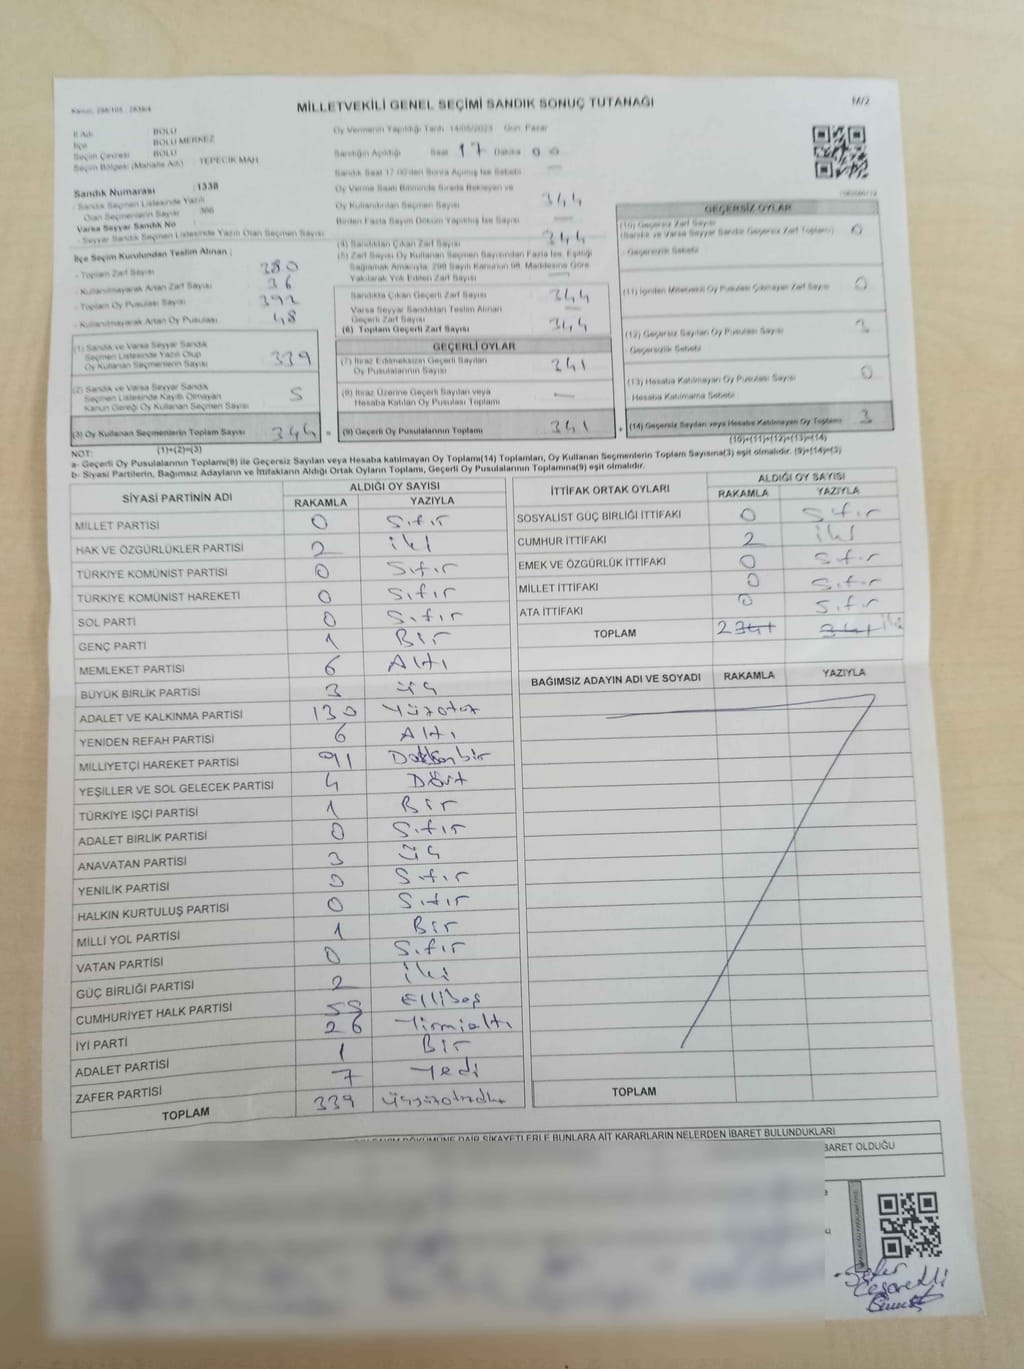 MİLLETVEKİLİ GENEL SEÇİMİ SANDIK SONUÇ TUTANAĞI
M/2
İl Adı BOLU
İlçe BOLU MERKEZ
Seçim Çevresi BOLU
Seçim Bölgesi (Mahalle Adı) TEPECİK MAH
Sandık Numarası : 1338
- Sandık Seçmen Listesinde Yazılı
Olan Seçmenlerin Sayısı
Varsa Seyyar Sandık No
- Seyyar Sandık Seçmen Listesinde Yazılı Olan Seçmen Sayısı
İlçe Seçim Kurulundan Teslim Alınan ;
- Toplam Zarf Sayısı 380
- Kullanılmayarak Artan Zarf Sayısı 36
- Toplam Oy Pusulası Sayısı 392
- Kullanılmayarak Artan Oy Pusulası 48
(1) Sandık ve Varsa Seyyar Sandık
Seçmen Listesinde Yazılı Olup
Oy Kullanan Seçmenlerin Sayısı 339
(2) Sandık ve Varsa Seyyar Sandık
Seçmen Listesinde Kayıtlı Olmayan
Kanun Gereği Oy Kullanan Seçmen Sayısı 5
(3) Oy Kullanan Seçmenlerin Toplam Sayısı 344
(1)+(2)=(3)
Oy Vermenin Yapıldığı Tarih 14/05/2023 Gün: Pazar
Sandığın Açıldığı Saat 17 Dakika 00
Sandık Saat 17.00'den Sonra Açılmış İse Sebebi
Oy Verme Saati Bitiminde Sırada Bekleyen ve
Oy Kullandırılan Seçmen Sayısı 344
Birden Fazla Sayım Döküm Yapılmış İse Sayısı
(4) Sandıktan Çıkan Zarf Sayısı 344
(5) Zarf Sayısı Oy Kullanan Seçmen Sayısından Fazla İse, Eşitliği
Sağlamak Amacıyla, 298 Sayılı Kanunun 98. Maddesine Göre
Yakılarak Yok Edilen Zarf Sayısı
Sandıkta Çıkan Geçerli Zarf Sayısı 344
Varsa Seyyar Sandıktan Teslim Alınan
Geçerli Zarf Sayısı
(6) Toplam Geçerli Zarf Sayısı 344
GEÇERLİ OYLAR
(7) İtiraz Edilmeksizin Geçerli Sayılan
Oy Pusulalarının Sayısı 341
(8) İtiraz Üzerine Geçerli Sayılan veya
Hesaba Katılan Oy Pusulası Toplamı
(9) Geçerli Oy Pusulalarının Toplamı 341
GEÇERSİZ OYLAR
(10) Geçersiz Zarf Sayısı 0
(Sandık ve Varsa Seyyar Sandık Geçersiz Zarf Toplamı)
- Geçersizlik Sebebi
(11) İçinden Milletvekili Oy Pusulası Çıkmayan Zarf Sayısı 0
(12) Geçersiz Sayılan Oy Pusulası Sayısı
- Geçersizlik Sebebi
(13) Hesaba Katılmayan Oy Pusulası Sayısı 0
- Hesaba Katılmama Sebebi
(14) Geçersiz Sayılan veya Hesaba Katılmayan Oy Toplamı 3
(10)+(11)+(12)+(13)=(14)
NOT:
a- Geçerli Oy Pusulalarının Toplamı(9) ile Geçersiz Sayılan veya Hesaba katılmayan Oy Toplamı(14) Toplamları, Oy Kullanan Seçmenlerin Toplam Sayısına(3) eşit olmalıdır. (9)+(14)=(3)
b- Siyasi Partilerin, Bağımsız Adayların ve İttifakların Aldığı Ortak Oyların Toplamı, Geçerli Oy Pusulalarının Toplamına(9) eşit olmalıdır.
SİYASİ PARTİNİN ADI ALDIĞI OY SAYISI
RAKAMLA YAZIYLA
MİLLET PARTİSİ 0 Sıfır
HAK VE ÖZGÜRLÜKLER PARTİSİ 2 iki
TÜRKİYE KOMÜNİST PARTİSİ 0 Sıfır
TÜRKİYE KOMÜNİST HAREKETİ 0 Sıfır
SOL PARTİ 0 Sıfır
GENÇ PARTİ 1 Bir
MEMLEKET PARTİSİ 6 Altı
BÜYÜK BİRLİK PARTİSİ 3 üç
ADALET VE KALKINMA PARTİSİ 130 Yüzotuz
YENİDEN REFAH PARTİSİ 6 Altı
MİLLİYETÇİ HAREKET PARTİSİ 91 Doksanbir
YEŞİLLER VE SOL GELECEK PARTİSİ 4 Dört
TÜRKİYE İŞÇİ PARTİSİ 1 Bir
ADALET BİRLİK PARTİSİ 0 Sıfır
ANAVATAN PARTİSİ 3 üç
YENİLİK PARTİSİ 0 Sıfır
HALKIN KURTULUŞ PARTİSİ 0 Sıfır
MİLLİ YOL PARTİSİ 1 Bir
VATAN PARTİSİ 0 Sıfır
GÜÇ BİRLİĞİ PARTİSİ 2 iki
CUMHURİYET HALK PARTİSİ 55 Ellibeş
İYİ PARTİ 26 Yirmialtı
ADALET PARTİSİ 1 Bir
ZAFER PARTİSİ 7 Yedi
TOPLAM 339
İTTİFAK ORTAK OYLARI ALDIĞI OY SAYISI
RAKAMLA YAZIYLA
SOSYALİST GÜÇ BİRLİĞİ İTTİFAKI 0 Sıfır
CUMHUR İTTİFAKI 2 iki
EMEK VE ÖZGÜRLÜK İTTİFAKI 0 Sıfır
MİLLET İTTİFAKI 0 Sıfır
ATA İTTİFAKI 0 Sıfır
TOPLAM 2 341 341 iki
BAĞIMSIZ ADAYIN ADI VE SOYADI RAKAMLA YAZIYLA
TOPLAM
DÖKÜMÜNE DAİR ŞİKAYETLERLE BUNLARA AİT KARARLARIN NELERDEN İBARET BULUNDUKLARI
BARET OLDUĞU